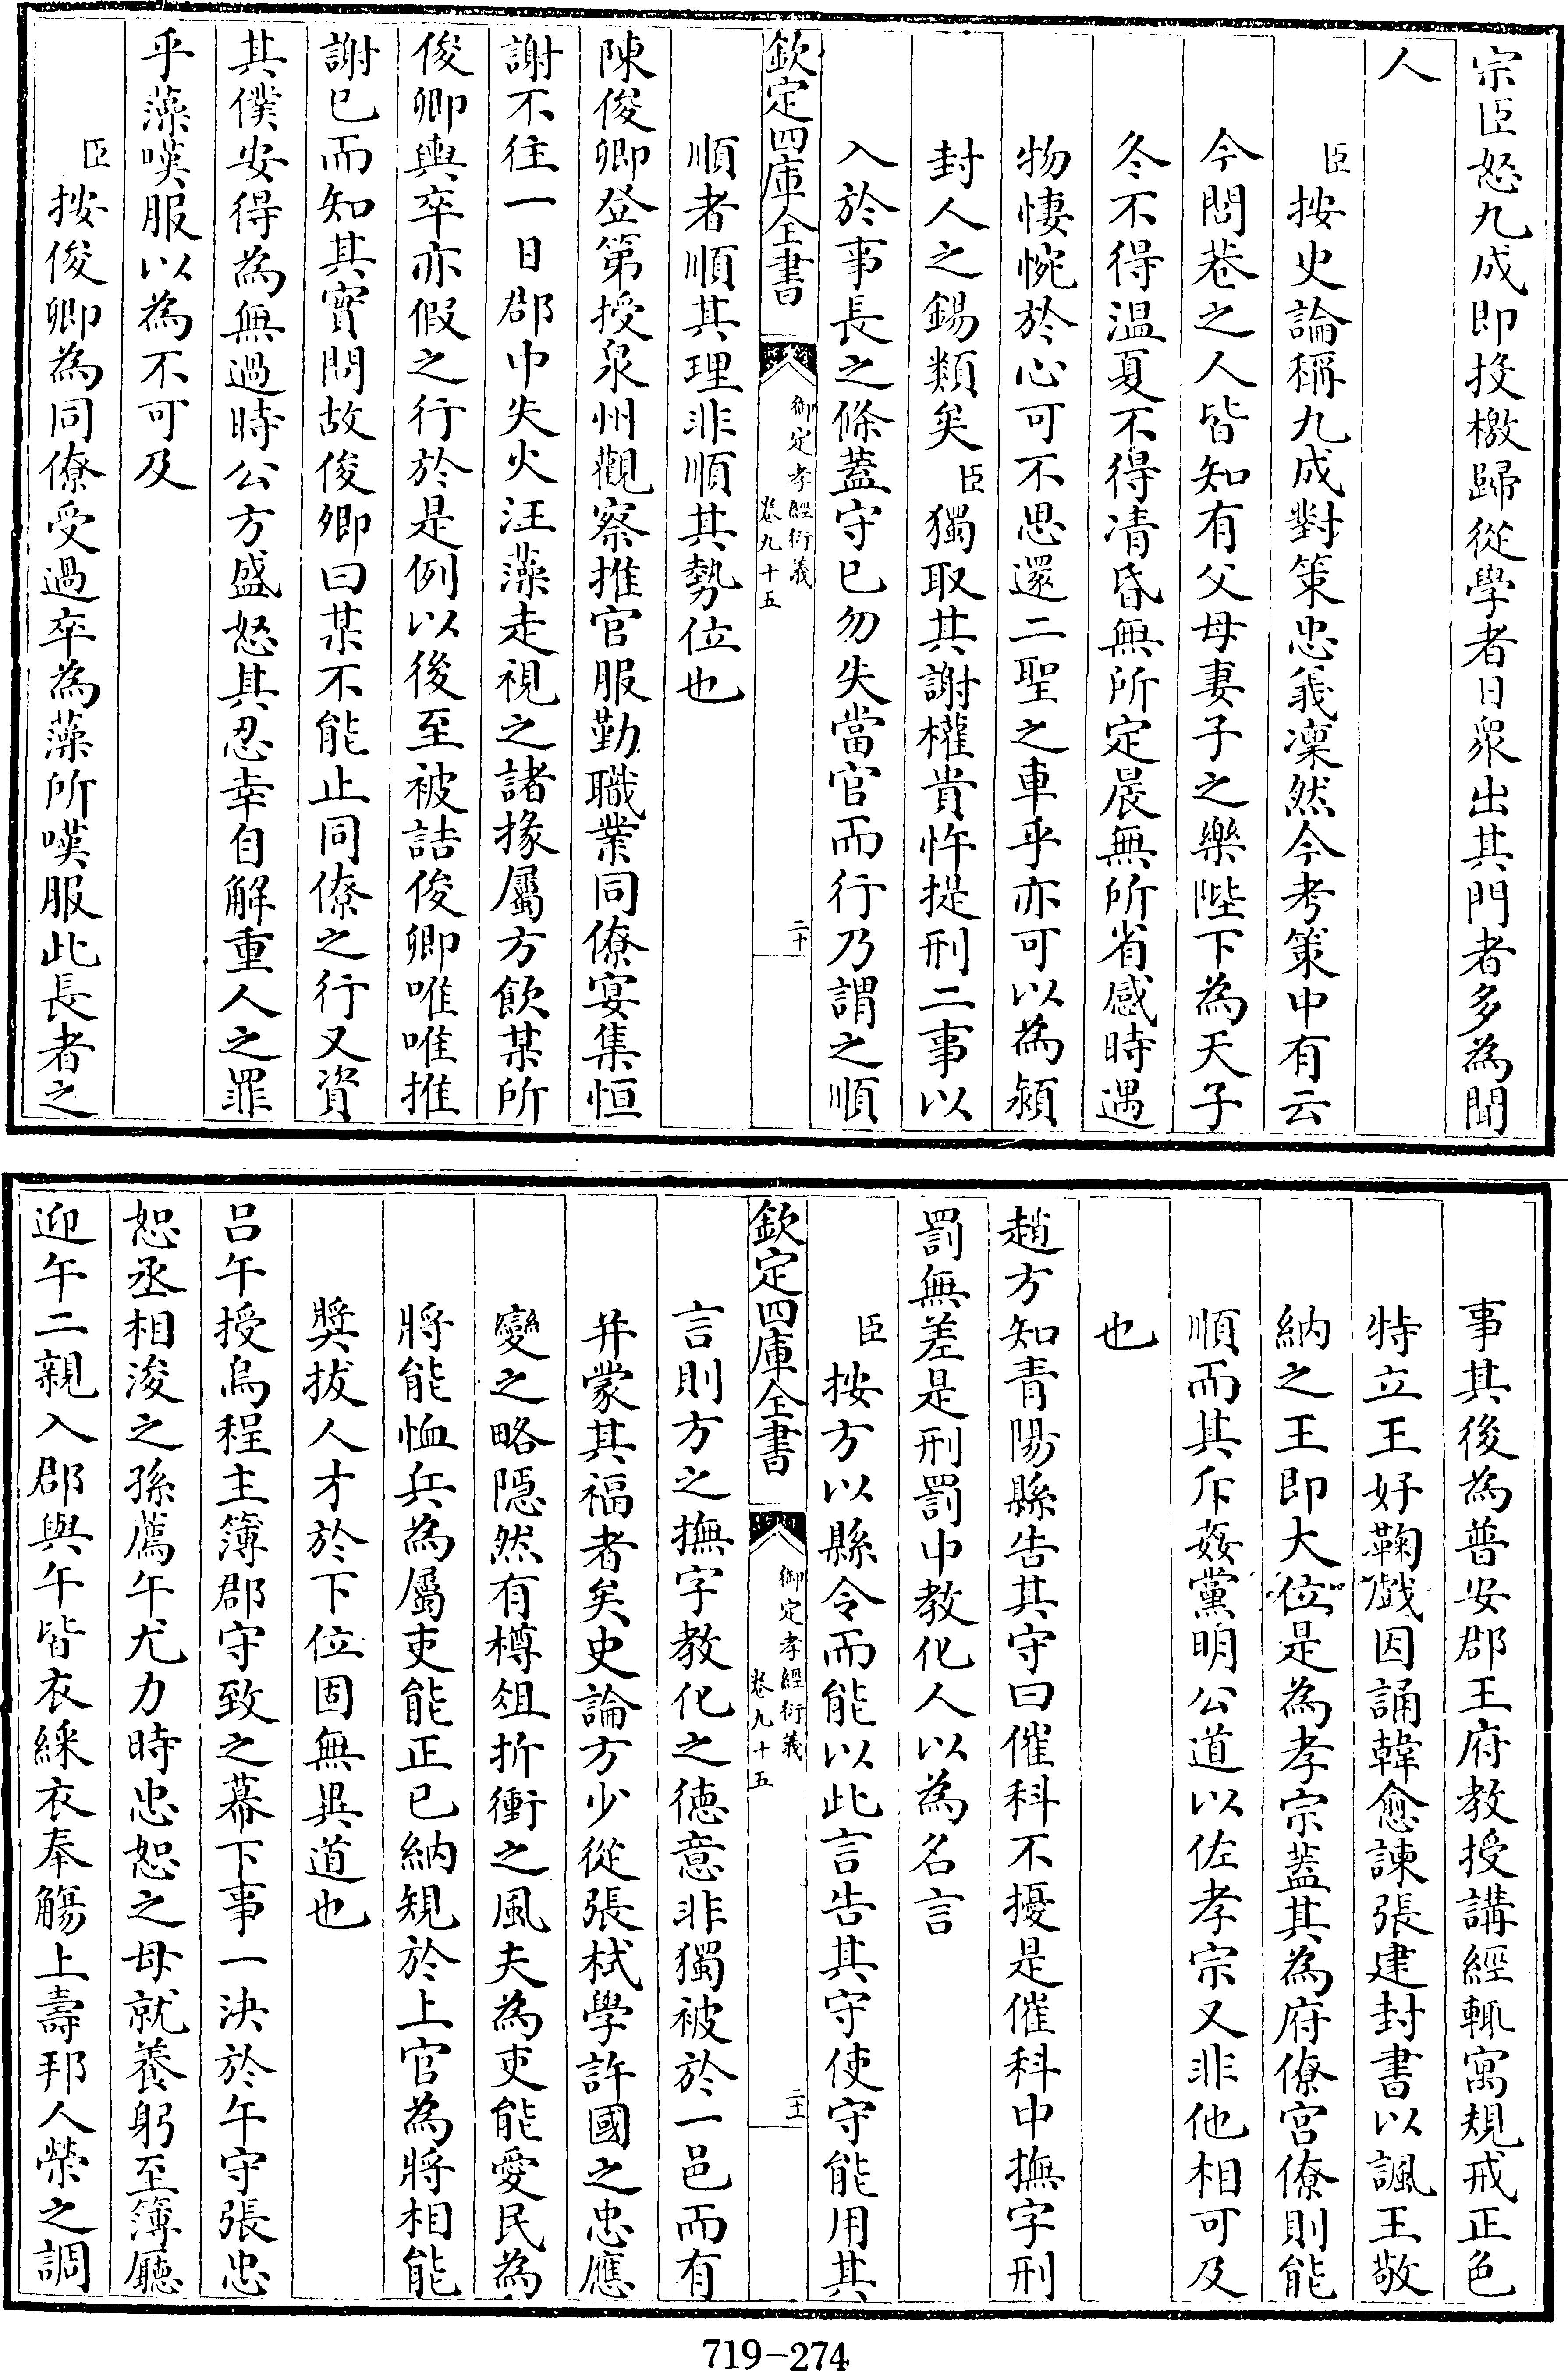 宗臣怒九成即投檄歸從學者日衆出其門者多為聞
人
臣按史論稱九成對策忠義凜然今考策中有云
今閭巷之人皆知有父母妻子之樂陛下為天子
冬不得溫夏不得凊昏無所定晨無所省感時遇
物悽惋於心可不思還二聖之車乎亦可以為潁
封人之錫類矣臣獨取其謝權貴忤提刑二事以
入於事長之條蓋守己勿失當官而行乃謂之順
欽定四庫全書
御定孝經衍義
卷九十五
二十
順者順其理非順其勢位也
陳俊卿登第授泉州觀察推官服勤職業同僚宴集恒
謝不往一日郡中失火汪藻走視之諸掾屬方飲某所
俊卿輿卒亦假之行於是例以後至被詰俊卿唯唯推
謝已而知其實問故俊卿曰某不能止同僚之行又資
其僕安得為無過時公方盛怒其忍幸自解重人之罪
乎藻嘆服以為不可及
臣按俊卿為同僚受過卒為藻所嘆服此長者之
事其後為普安郡王府教授講經輒寓規戒正色
特立王好鞠戲因誦韓愈諫張建封書以諷王敬
納之王即大位是為孝宗蓋其為府僚宫僚則能
順而其斥姦黨明公道以佐孝宗又非他相可及
也
趙方知青陽縣告其守曰催科不擾是催科中撫字刑
罰無差是刑罰中教化人以為名言
臣按方以縣令而能以此言告其守使守能用其
欽定四庫全書
御定孝經衍義
卷九十五
二十一
言則方之撫字教化之德意非獨被於一邑而有
并蒙其福者矣史論方少從張栻學許國之忠應
變之略隱然有樽俎折衝之風夫為吏能愛民為
將能恤兵為屬吏能正己納規於上官為將相能
獎拔人才於下位固無異道也
吕午授烏程主簿郡守致之幕下事一決於午守張忠
恕丞相浚之孫薦午尤力時忠恕之母就養躬至簿廳
迎午二親入郡與午皆衣綵衣奉觴上壽邦人榮之調
719-274